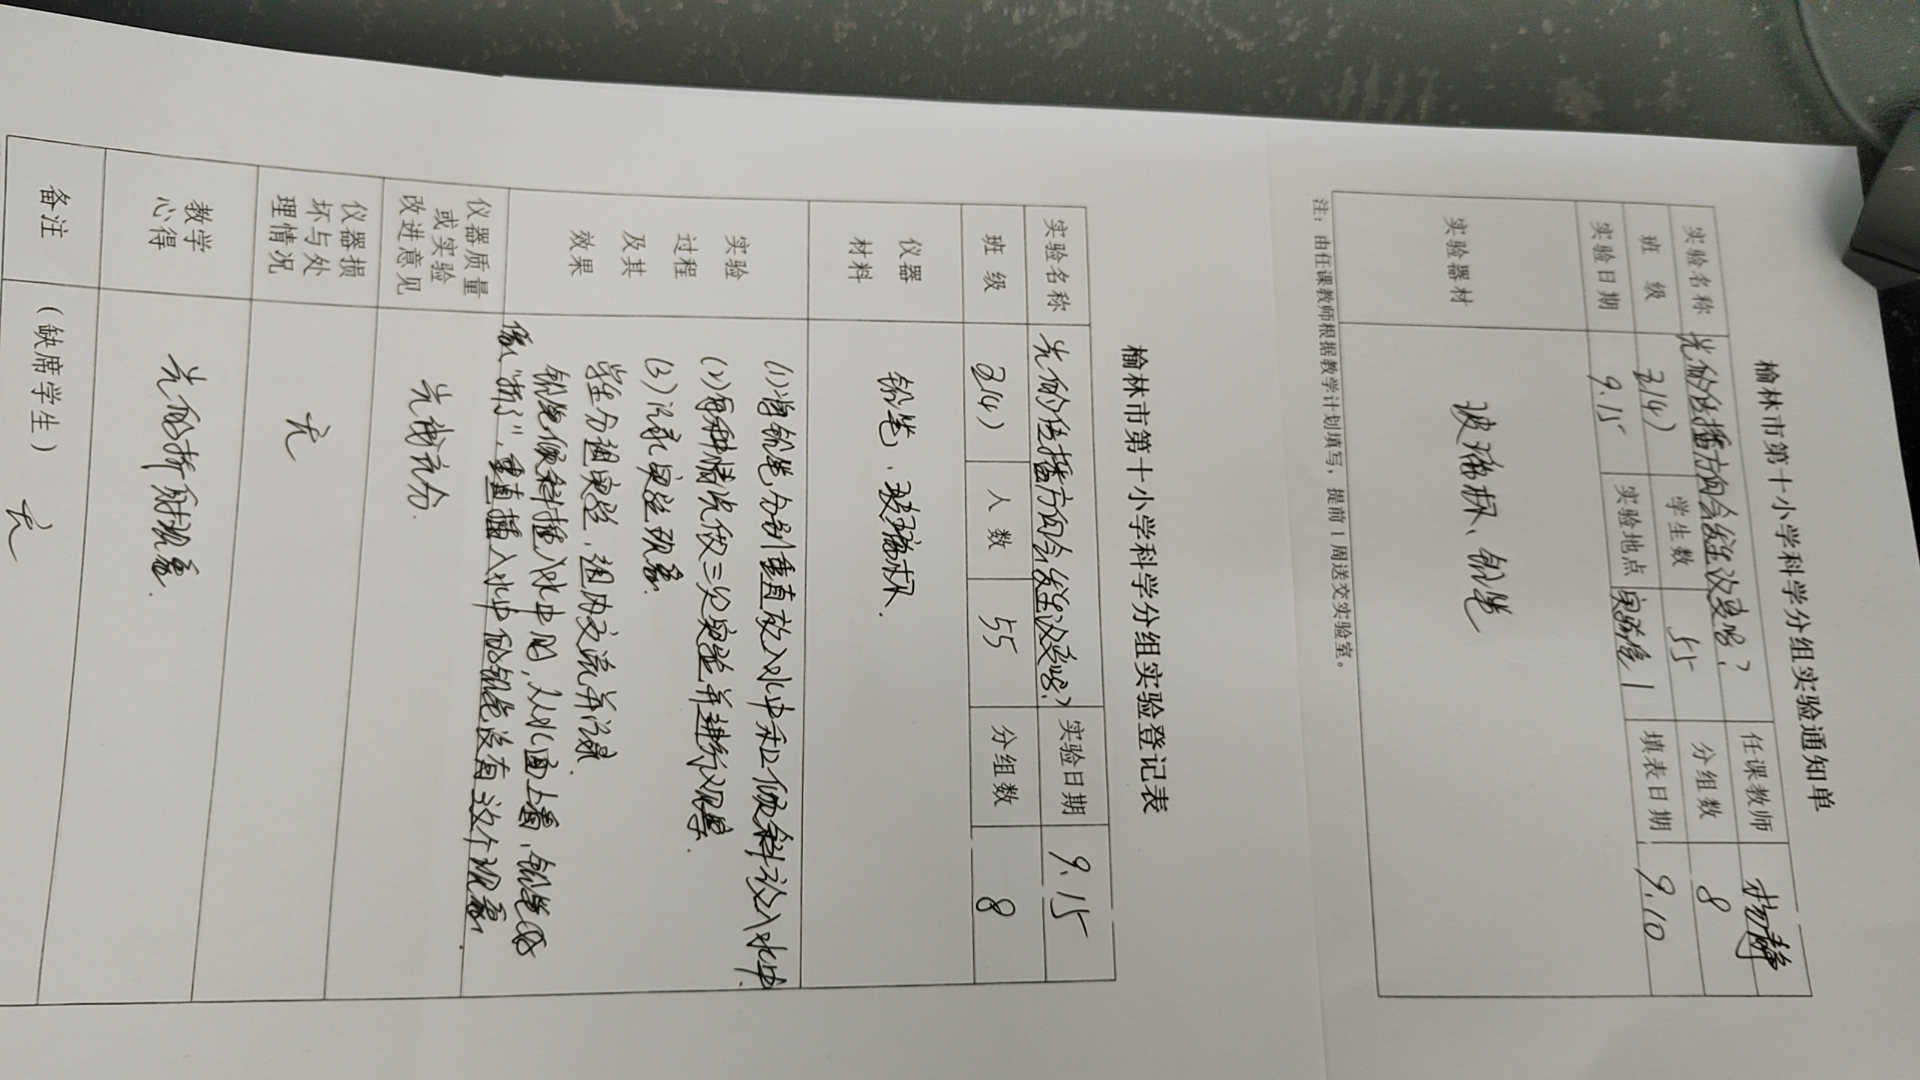 榆林市第十小学科学分组实验通知单
实验名称 光的传播方向会发生改变吗? 任课教师 杨静
班 级 3(4) 学生数 55 分组数 8
实验日期 9.15 实验地点 实验室1 填表日期 9.10
实验器材 玻璃杯、铅笔
注：由任课教师根据教学计划填写，提前1周送交实验室。
榆林市第十小学科学分组实验登记表
实验名称 光的传播方向会发生改变吗? 实验日期 9.15
班 级 3(4) 人 数 55 分组数 8
仪器
材料
铅笔、玻璃杯.
实验
过程
及其
效果
(1)将铅笔分别垂直放入水中和倾斜放入水中.
(2)每种情况做三次实验并进行观察.
(3)记录实验现象.
学生分组实验，组内交流并记录.
铅笔倾斜插入水中时,从水面上看,铅笔好
像“折了”,垂直插入水中的铅笔没有这个现象.
仪器质量
或实验
改进意见
光线充分.
仪器损
坏与处
理情况
无
教学
心得
光的折射现象.
备注
(缺席学生)
无